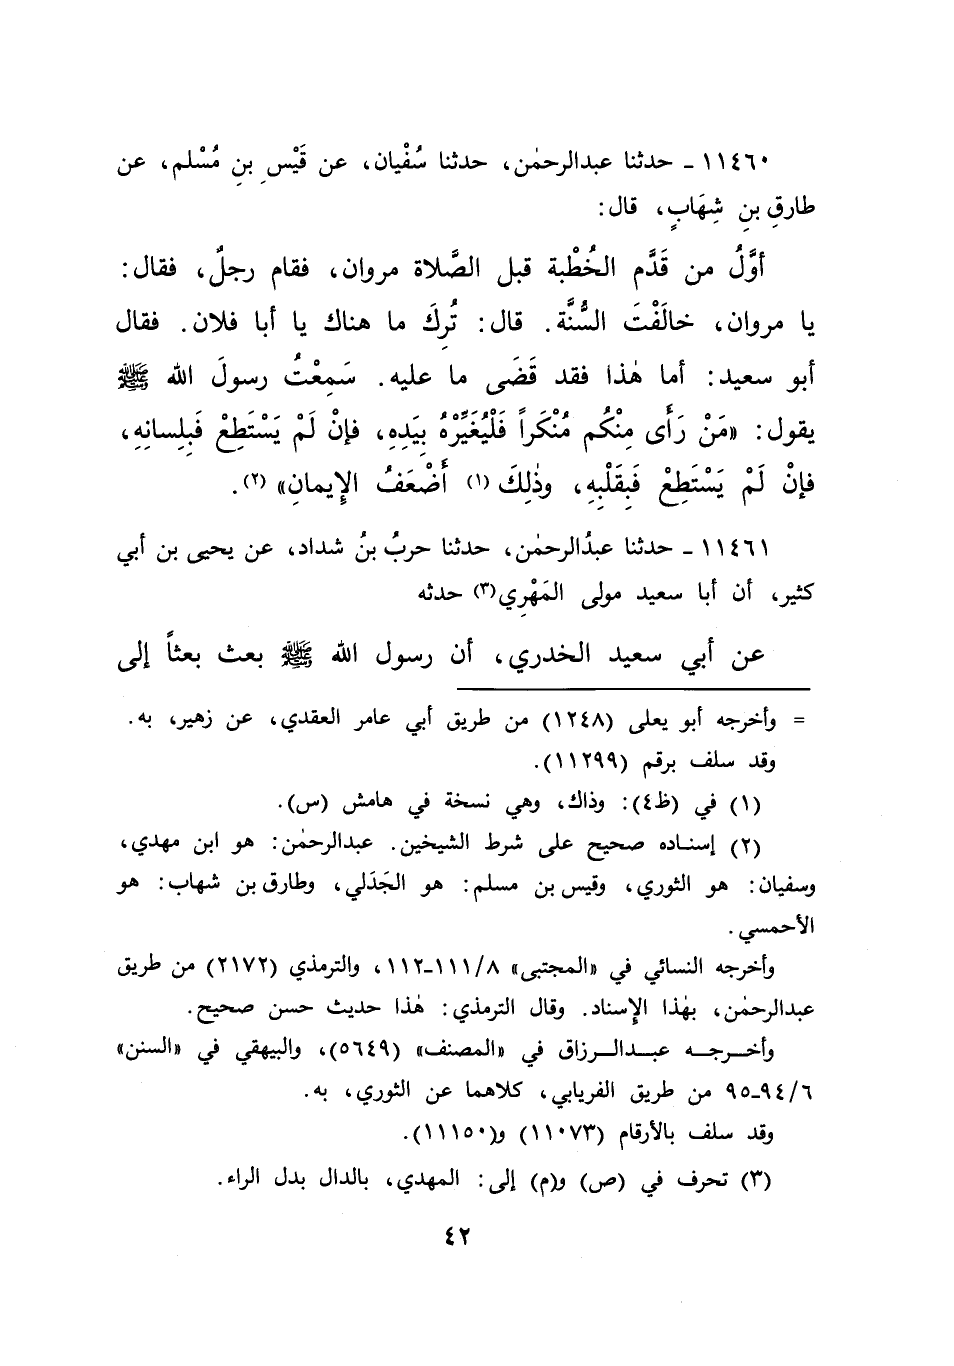 ١١٤٦٠ ـ حدثنا عبدالرحمٰن، حدثنا سُفْيان، عن قَيْسِ بنِ مُسْلم، عن
طارقِ بنِ شِهَابٍ، قال:
أوَّلُ من قَدَّم الخُطْبة قبل الصَّلاة مروان، فقام رجلٌ، فقال:
يا مروان، خالَفْتَ السُّنَّة. قال: تُرِكَ ما هناك يا أبا فلان. فقال
أبو سعيد: أما هٰذا فقد قَضَى ما عليه. سَمِعْتُ رسولَ الله ﷺ
يقول: «مَنْ رَأَى مِنْكُم مُنْكَراً فَلْيُغَيِّرْهُ بِيَدِهِ، فإنْ لَمْ يَسْتَطِعْ فَبِلِسانِهِ،
فإنْ لَمْ يَسْتَطِعْ فَبِقَلْبِهِ، وذٰلِكَ (١) أَضْعَفُ الإِيمانِ» (٢).
١١٤٦١ ـ حدثنا عبدُالرحمٰن، حدثنا حربُ بنُ شداد، عن يحيى بن أبي
كثير، أن أبا سعيد مولى المَهْرِي (٣) حدثه
عن أبي سعيد الخدري، أن رسول الله ﷺ بعث بعثاً إلى
= وأخرجه أبو يعلى (١٢٤٨) من طريق أبي عامر العقدي، عن زهير، به.
وقد سلف برقم (١١٢٩٩).
(١) في (ظ٤): وذاك، وهي نسخة في هامش (س).
(٢) إسناده صحيح على شرط الشيخين. عبدالرحمٰن: هو ابن مهدي،
وسفيان: هو الثوري، وقيس بن مسلم: هو الجَدَلي، وطارق بن شهاب: هو
الأحمسي.
وأخرجه النسائي في «المجتبى» ٨/١١١ـ١١٢، والترمذي (٢١٧٢) من طريق
عبدالرحمٰن، بهٰذا الإسناد. وقال الترمذي: هٰذا حديث حسن صحيح.
وأخرجه عبدالرزاق في «المصنف» (٥٦٤٩)، والبيهقي في «السنن»
٦/٩٤ـ٩٥ من طريق الفريابي، كلاهما عن الثوري، به.
وقد سلف بالأرقام (١١٠٧٣) و(١١١٥٠).
(٣) تحرف في (ص) و(م) إلى: المهدي، بالدال بدل الراء.
٤٢